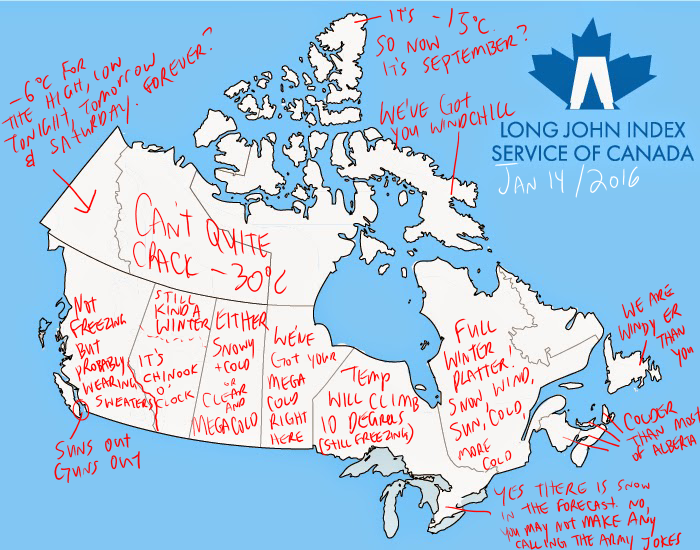 IT'S -15°C.
SO NOW
IT'S SEPTEMBER?
-6°C FOR
THE HIGH, LOW
TONIGHT, TOMORROW
& SATURDAY. FOREVER?
WE'VE GOT
YOU WINDCHILL
LONG JOHN INDEX
SERVICE OF CANADA
JAN 14/2016
CAN'T QUITE
CRACK -30°C
NOT
FREEZING
BUT
PROBABLY
WEARING
SWEATERS
SUNS OUT
GUNS OUT
STILL
KINDA
WINTER
IT'S
CHINOOK
O'
CLOCK
EITHER
SNOWY
+ COLD
OR
CLEAR
AND
MEGACOLD
WE'VE
GOT YOUR
MEGA
COLD
RIGHT
HERE
TEMP
WILL CLIMB
10 DEGREES
(STILL FREEZING)
FULL
WINTER
PLATTER!
SNOW, WIND,
SUN, COLD,
MORE
COLD
WE ARE
WINDY ER
THAN
YOU
COLDER
THAN MOST
OF ALBERTA
YES THERE IS SNOW
IN THE FORECAST. NO,
YOU MAY NOT MAKE ANY
CALLING THE ARMY JOKES